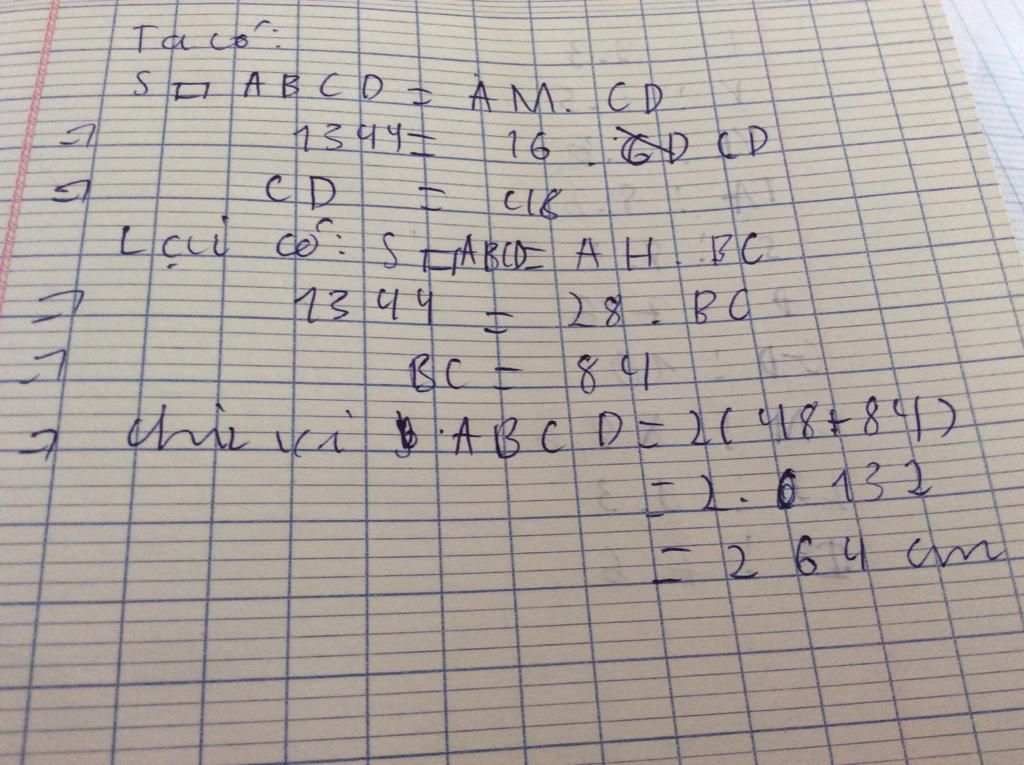 Ta có:
S ▭ ABCD = AM. CD
⇒ 1344 = 16 . CD
⇒ CD = 48
Lại có: S ▭ ABCD = AH. BC
⇒ 1344 = 28 . BC
⇒ BC = 84
⇒ Chu vi ABCD = 2(48+84)
= 2. 132
= 264 cm